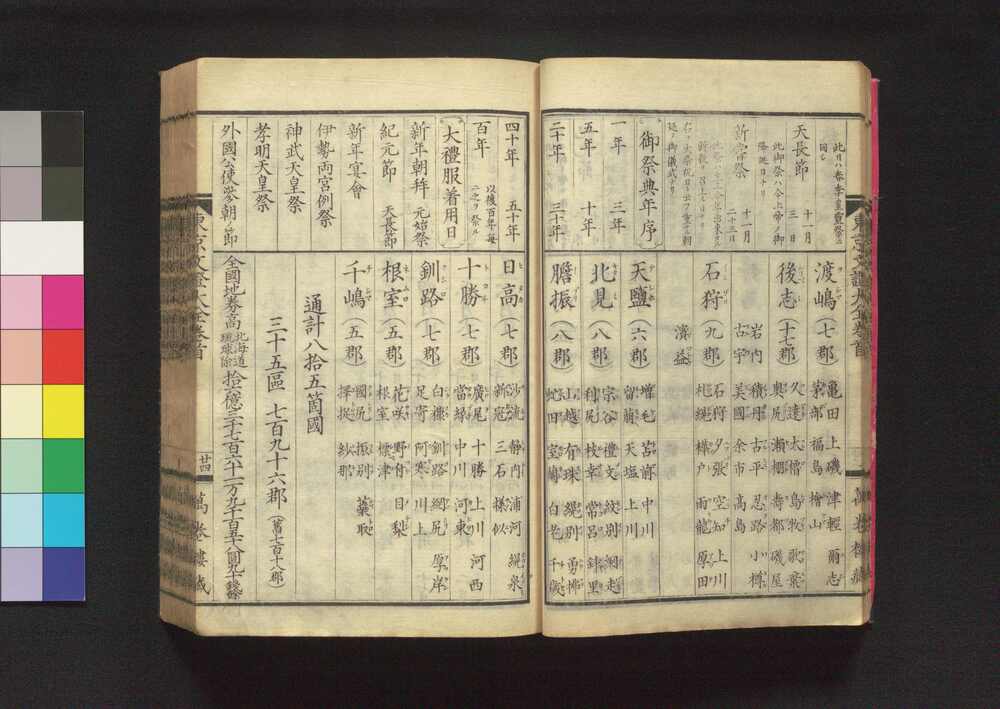 此日ハ春季皇靈祭ニ
同シ
天長節
十一月
三日
此御祭ハ今上帝ノ御
降誕日ナリ
新嘗祭
十一月
二十三日
御祭典年序
一年 三年
五年 十年
二十年 三十年
渡嶋(七郡)
亀田 上磯 津輕 爾志
茅部 福島 檜山
後志(十七郡)
久遠 太櫓 島牧 歌棄
奥尻 瀬棚 壽都 磯屋
岩内 積丹 古平 忍路 小樽
古宇 美國 余市 高島
石狩(九郡)
石狩 夕張 空知 上川
札幌 樺戸 雨龍 厚田
濱益
天鹽(六郡)
増毛 苫前 中川
留萠 天塩 上川
北見(八郡)
宗谷 禮文 紋別 網走
利尻 枝幸 常呂 斜里
膽振(八郡)
山越 有珠 幌別 勇拂
虻田 室蘭 白老 千歳
四十年 五十年
百年
以後百年毎
ニ之ヲ祭ル
大禮服着用日
新年朝拜 元始祭
紀元節 天長節
新年宴會
伊勢両宮例祭
神武天皇祭
孝明天皇祭
外國公使參朝ノ節
日高(七郡)
沙流 静内 浦河 幌泉
新冠 三石 様似
十勝(七郡)
廣尾 十勝 上川 河西
當縁 中川 河東
釧路(七郡)
白糠 釧路 網尻 厚岸
足寄 阿寒 川上
根室(五郡)
花咲 野付 目梨
根室 標津
千嶋(五郡)
國尻 振別 蘂取
擇捉 紗那
通計八拾五箇國
三十五區 七百九十六郡(舊七百十八郡)
全國地券高
北海道
琉球除
東京文證大全卷首
廿四
萬巻樓藏